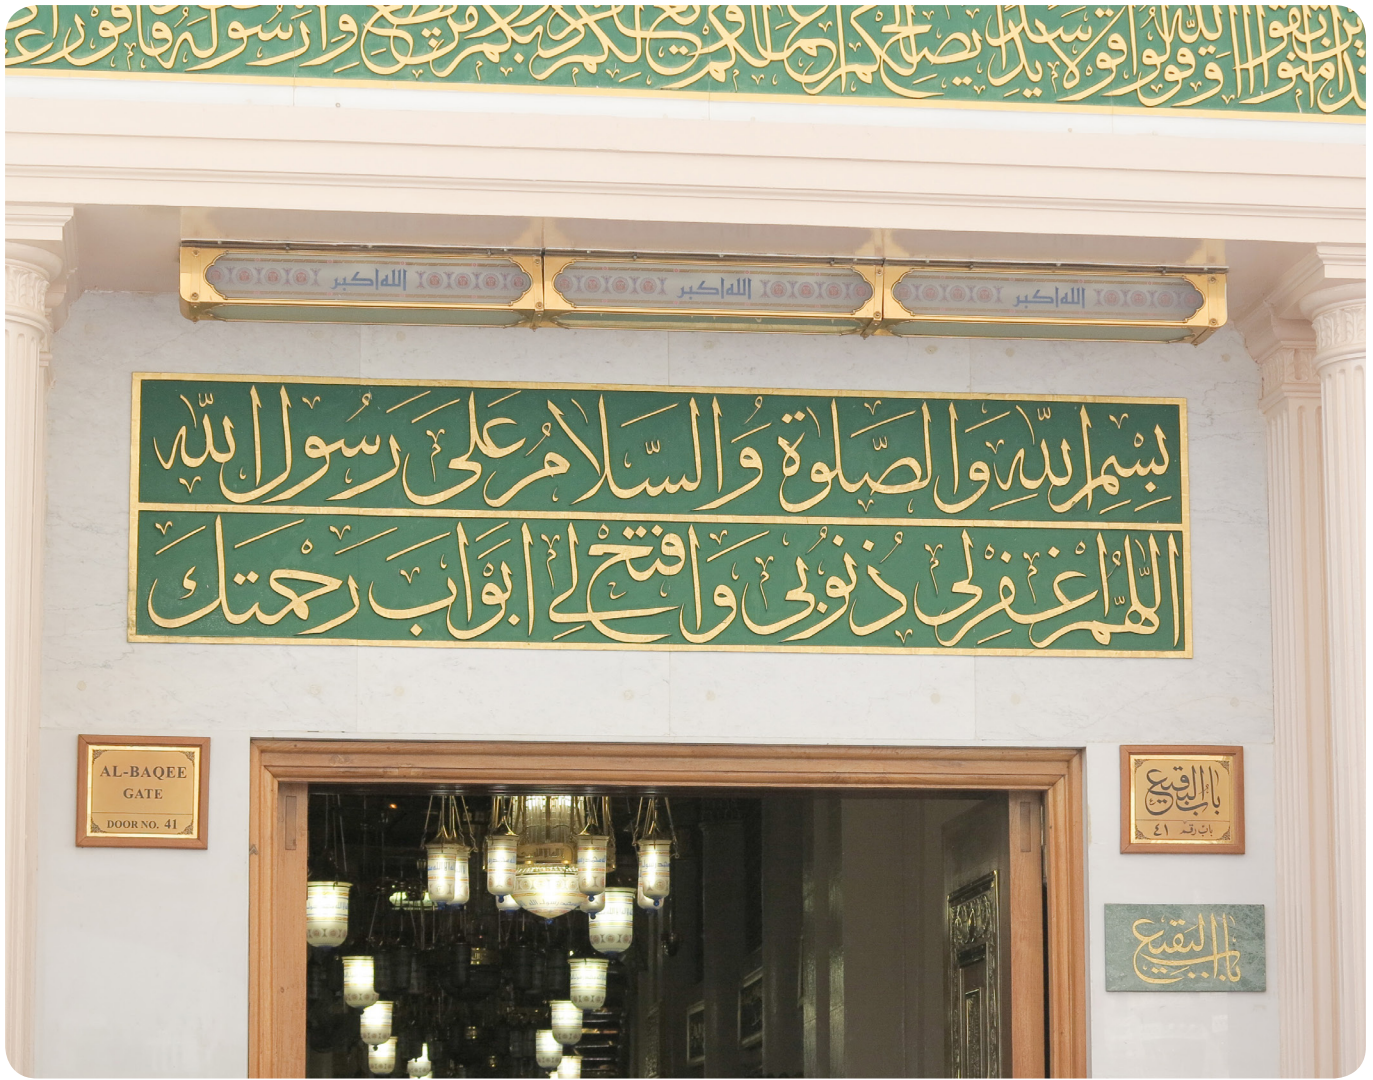 آمنوا اتقوا الله وقولوا قولا سديدا يصلح لكم أعمالكم لكم ومن يطع ورسوله فوزا
الله اكبر الله اكبر الله اكبر
بِسْمِ اللّه وَالصَّلوة وَالسَّلامُ عَلىَ رَسُول الله
اللّهُمَّ اغفرلي ذُنوُبي وَافتح لي ابوَابَ رَحْمتكَ
AL-BAQEE
GATE
DOOR NO. 41
باب البقيع
باب رقم ٤١
باب البقيع